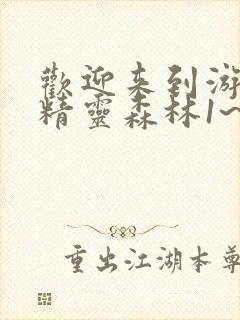 歡迎来到游
精靈森林1~
重出江湖本尊